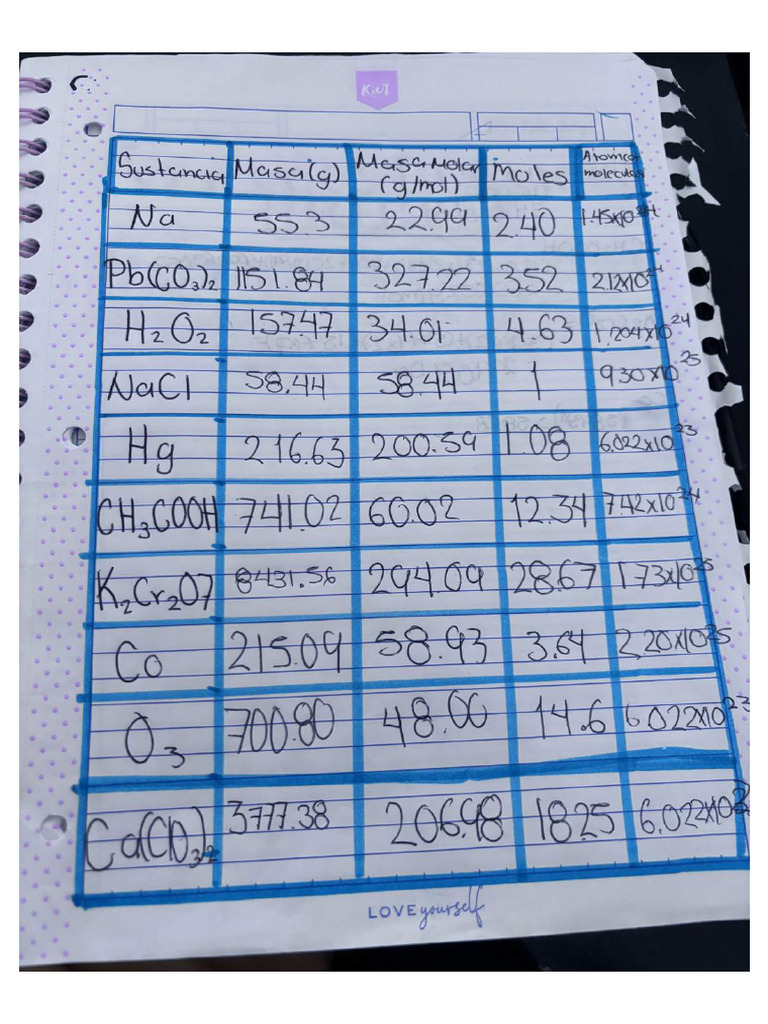 KiUT
Sustancia Masa(g) Masa Molar (g/mol) moles Atomos moleculas
Na 55.3 22.99 2.40 1.45x10²⁴
Pb(CO₃)₂ 1151.84 327.22 3.52 2.12x10²⁴
H₂O₂ 157.47 34.01 4.63 1.204x10²⁴
NaCl 58.44 58.44 1 9.30x10²⁵
Hg 216.63 200.59 1.08 6.022x10²³
CH₃COOH 741.02 60.02 12.34 7.42x10²⁴
K₂Cr₂O7 8431.56 294.09 28.67 1.73x10²⁵
Co 215.09 58.93 3.64 2.20x10²⁵
O₃ 700.80 48.00 14.6 6.022x10²³
Ca(ClO₃)₂ 3777.38 206.98 18.25
LOVE yourself